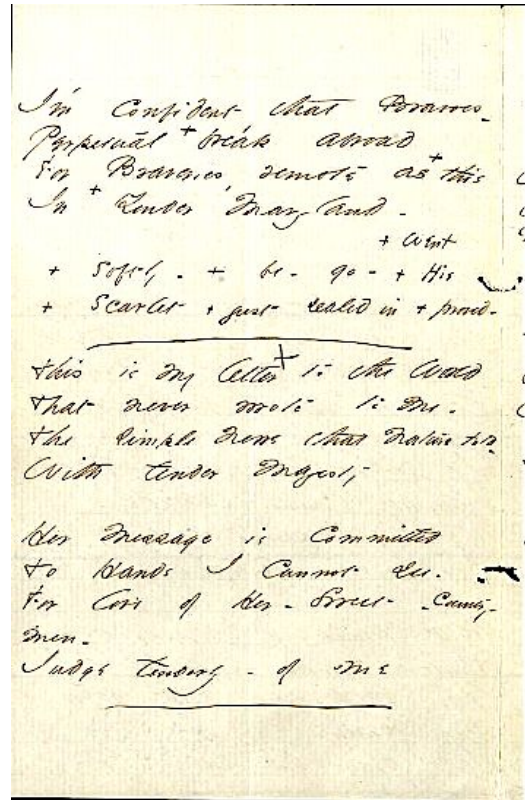 I'm confident that Bravoes -
Perpetual + break abroad
For Braveries, remote as + this
In + Yonder Maryland -
+ went
+ softly - + be - go - + His
+ Scarlet + just sealed in + proud -
This is my letter to the World
That never wrote to Me -
The simple News that Nature told -
With tender Majesty
Her Message is Committed
To Hands I cannot see -
For love of Her - Sweet - country-
men -
Judge tenderly - of Me